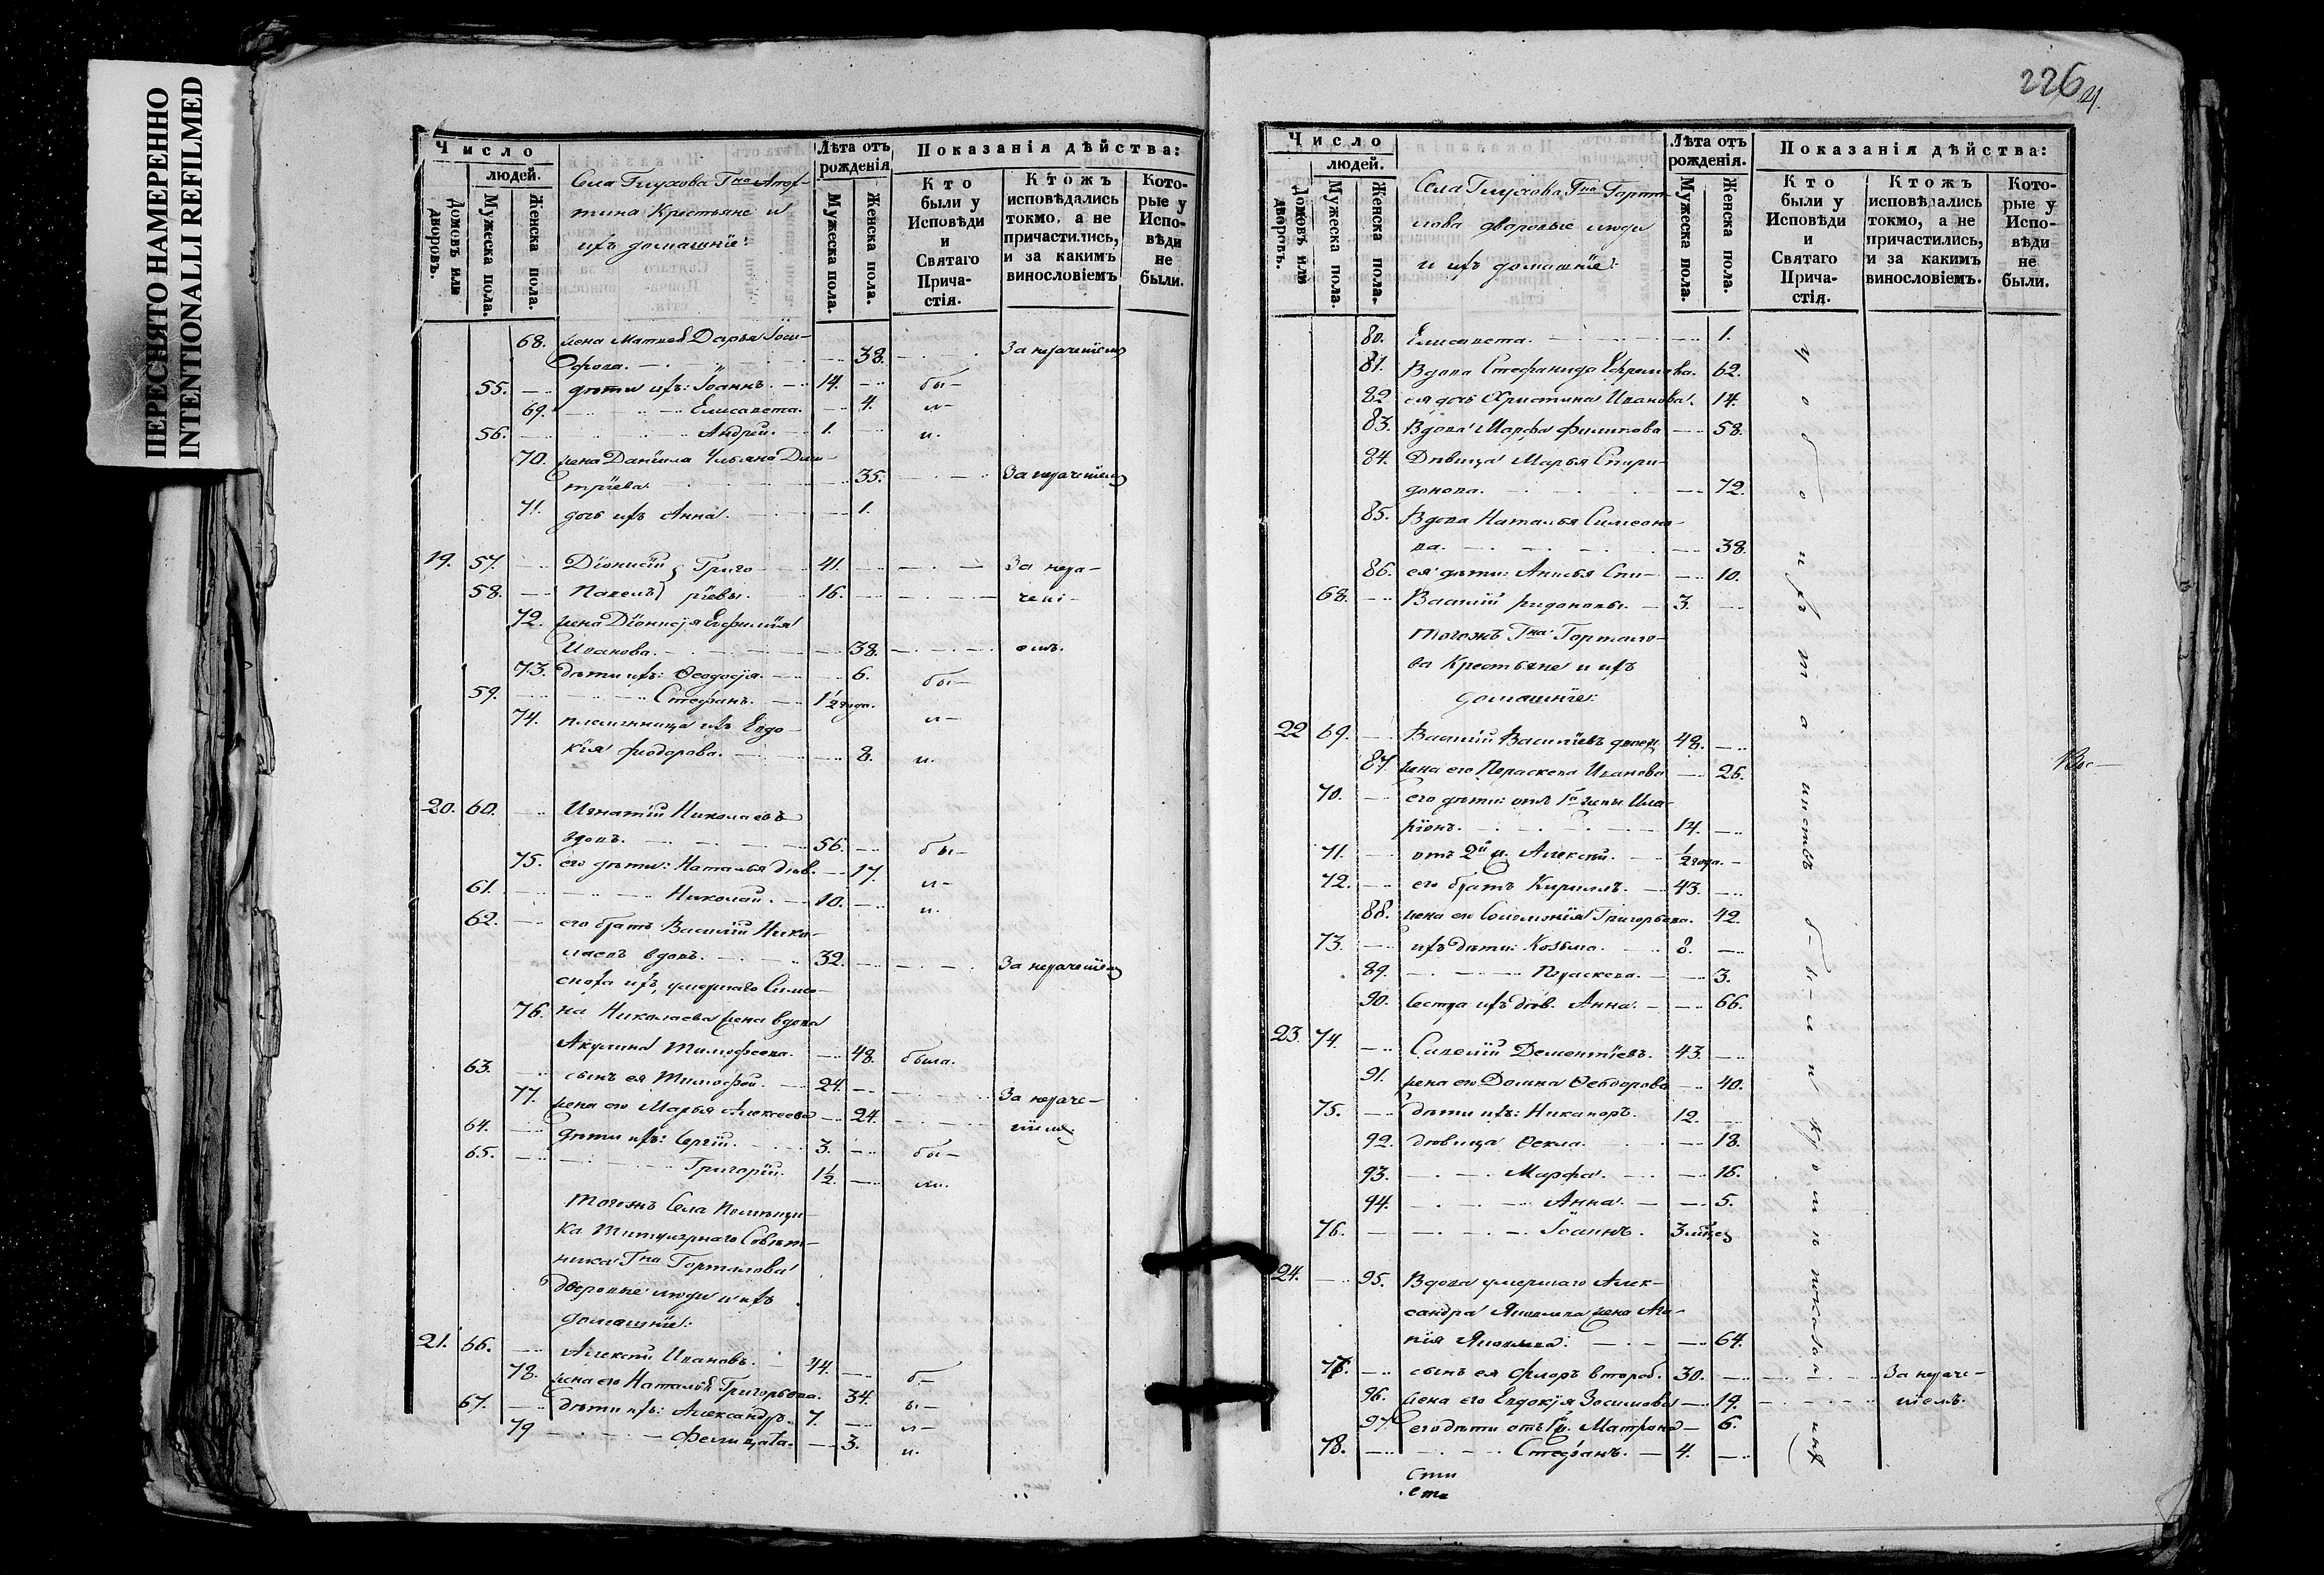 ПЕРЕСНЯТО НАМЕРЕННО
INTENTIONALLI REFILMED
Число
людей.
Домовъ или дворовъ.
Мужеска пола.
Женска пола.
Села Глухова Гна
тина Крестьяне и
ихъ домашніе:
Лѣта отъ
рожденія
Мужеска пола.
Женска пола.
Показанія дѣйства:
Кто
были у
Исповѣди
и
Святаго
Прича-
стія.
Ктожъ
исповѣдались
токмо, а не
причастились,
и за какимъ
винословіемъ
Кото-
рые у
Испо-
вѣди
не
были.
68. жена Матвея Дарья
38. За нераченіем
55. дѣти ихъ: Іоаннъ. 14. бы-
69. Елисавета. 4. л-
56. Андрей. 1. и.
70. жена Даніила Ульяна Дми-
тріева. 35. За нераченіем
71. дочь ихъ Анна. 1.
19. 57. Діонисій Григо- 41. За нера-
58. Павелъ рьевы. 16. чені-
72. жена Діонисія Евфимія
Иванова. 38. емъ.
73. дѣти ихъ: Ѳеодосія. 6. бы-
59. Стефанъ. 1 1/2 года. л-
74. племянница ихъ Евдо-
кія Фиодорова. 8. и.
20. 60. Игнатій Николаевъ
вдовъ. 56. бы-
75. его дѣти: Наталья дѣв. 17. л-
61. Николай. 10. и.
62. его братъ Василій Нико-
лаевъ вдовъ. 32. За нераченіем
сноха ихъ, умершаго Симео-
76. на Николаева жена вдова
Акулина Тимофеева. 48. была.
63. сынъ ея Тимофей. 24.
77. жена его Марья Алексеева 24. За нераче-
64. дѣти ихъ: Сергій. 3. бы-
ніем
65. Григорій. 1 1/2. ли.
Тогожъ Села Помѣщи-
ка Титулярнаго Совѣт-
ника Гна Горталова
дворовые люди и ихъ
домашніе:
21. 66. Алексѣй Ивановъ. 44. б-
78. жена его Наталья Григорьева. 34. ы-
67. дѣти ихъ: Александръ. 7. л-
79 Фелицата. 3. и.
226
Число
людей.
Домовъ или дворовъ.
Мужеска пола.
Женска пола.
Села Глухова, Гна Горта-
лова дворовые люди
и ихъ домашніе:
Лѣта отъ
рожденія.
Мужеска пола.
Женска пола.
Показанія дѣйства:
Кто
были у
Исповѣди
и
Святаго
Прича-
стія.
Ктожъ
исповѣдались
токмо, а не
причастились,
и за какимъ
винословіемъ.
Кото-
рые у
Испо-
вѣди
не
были.
80. Елисавета. 1.
81. Вдова Стефанида Ефремова. 62.
82 ея дочь Христина Иванова. 14.
83. Вдова Марфа Филипова 58.
84. Дѣвица Марья Спири-
донова. 72.
85. Вдова Наталья Симеоно-
ва. 38.
86. ея дѣти: Анисья Спи- 10.
68. Василій ридоновы. 3.
Тогожъ Гна Гортало-
ва Крестьяне и ихъ
домашніе:
22 69. Василій Васильевъ 48.
87 жена его Параскева Иванова 26.
70. его дѣти: отъ 1й жены Ила-
ріонъ. 14.
71. отъ 2й ж. Алексѣй. 1/2 года.
72. его братъ Кириллъ. 43.
88. жена его Соломонія Григорьева. 42.
73. ихъ дѣти: Козьма. 8.
89. Параскева. 3.
90. Сестра ихъ дѣв. Анна. 66.
23. 74. Савелій Дементіевъ. 43.
91. жена его Домна Ѳеодорова 40.
75. дѣти ихъ: Никаноръ. 12.
92. дѣвица Ѳекла. 18.
93. Марфа. 16.
94. Анна. 5.
76. Іоаннъ.
24. 95. Вдова умершаго Алек-
сандра Яковлева жена
Яковлева. 64.
77. сынъ ея Флоръ 30. За нераче-
96. жена его Евдокія Зосимова 19. ніемъ.
97 его дѣти отъ 1й ж. Матрона 6.
78. Стефанъ. 4.